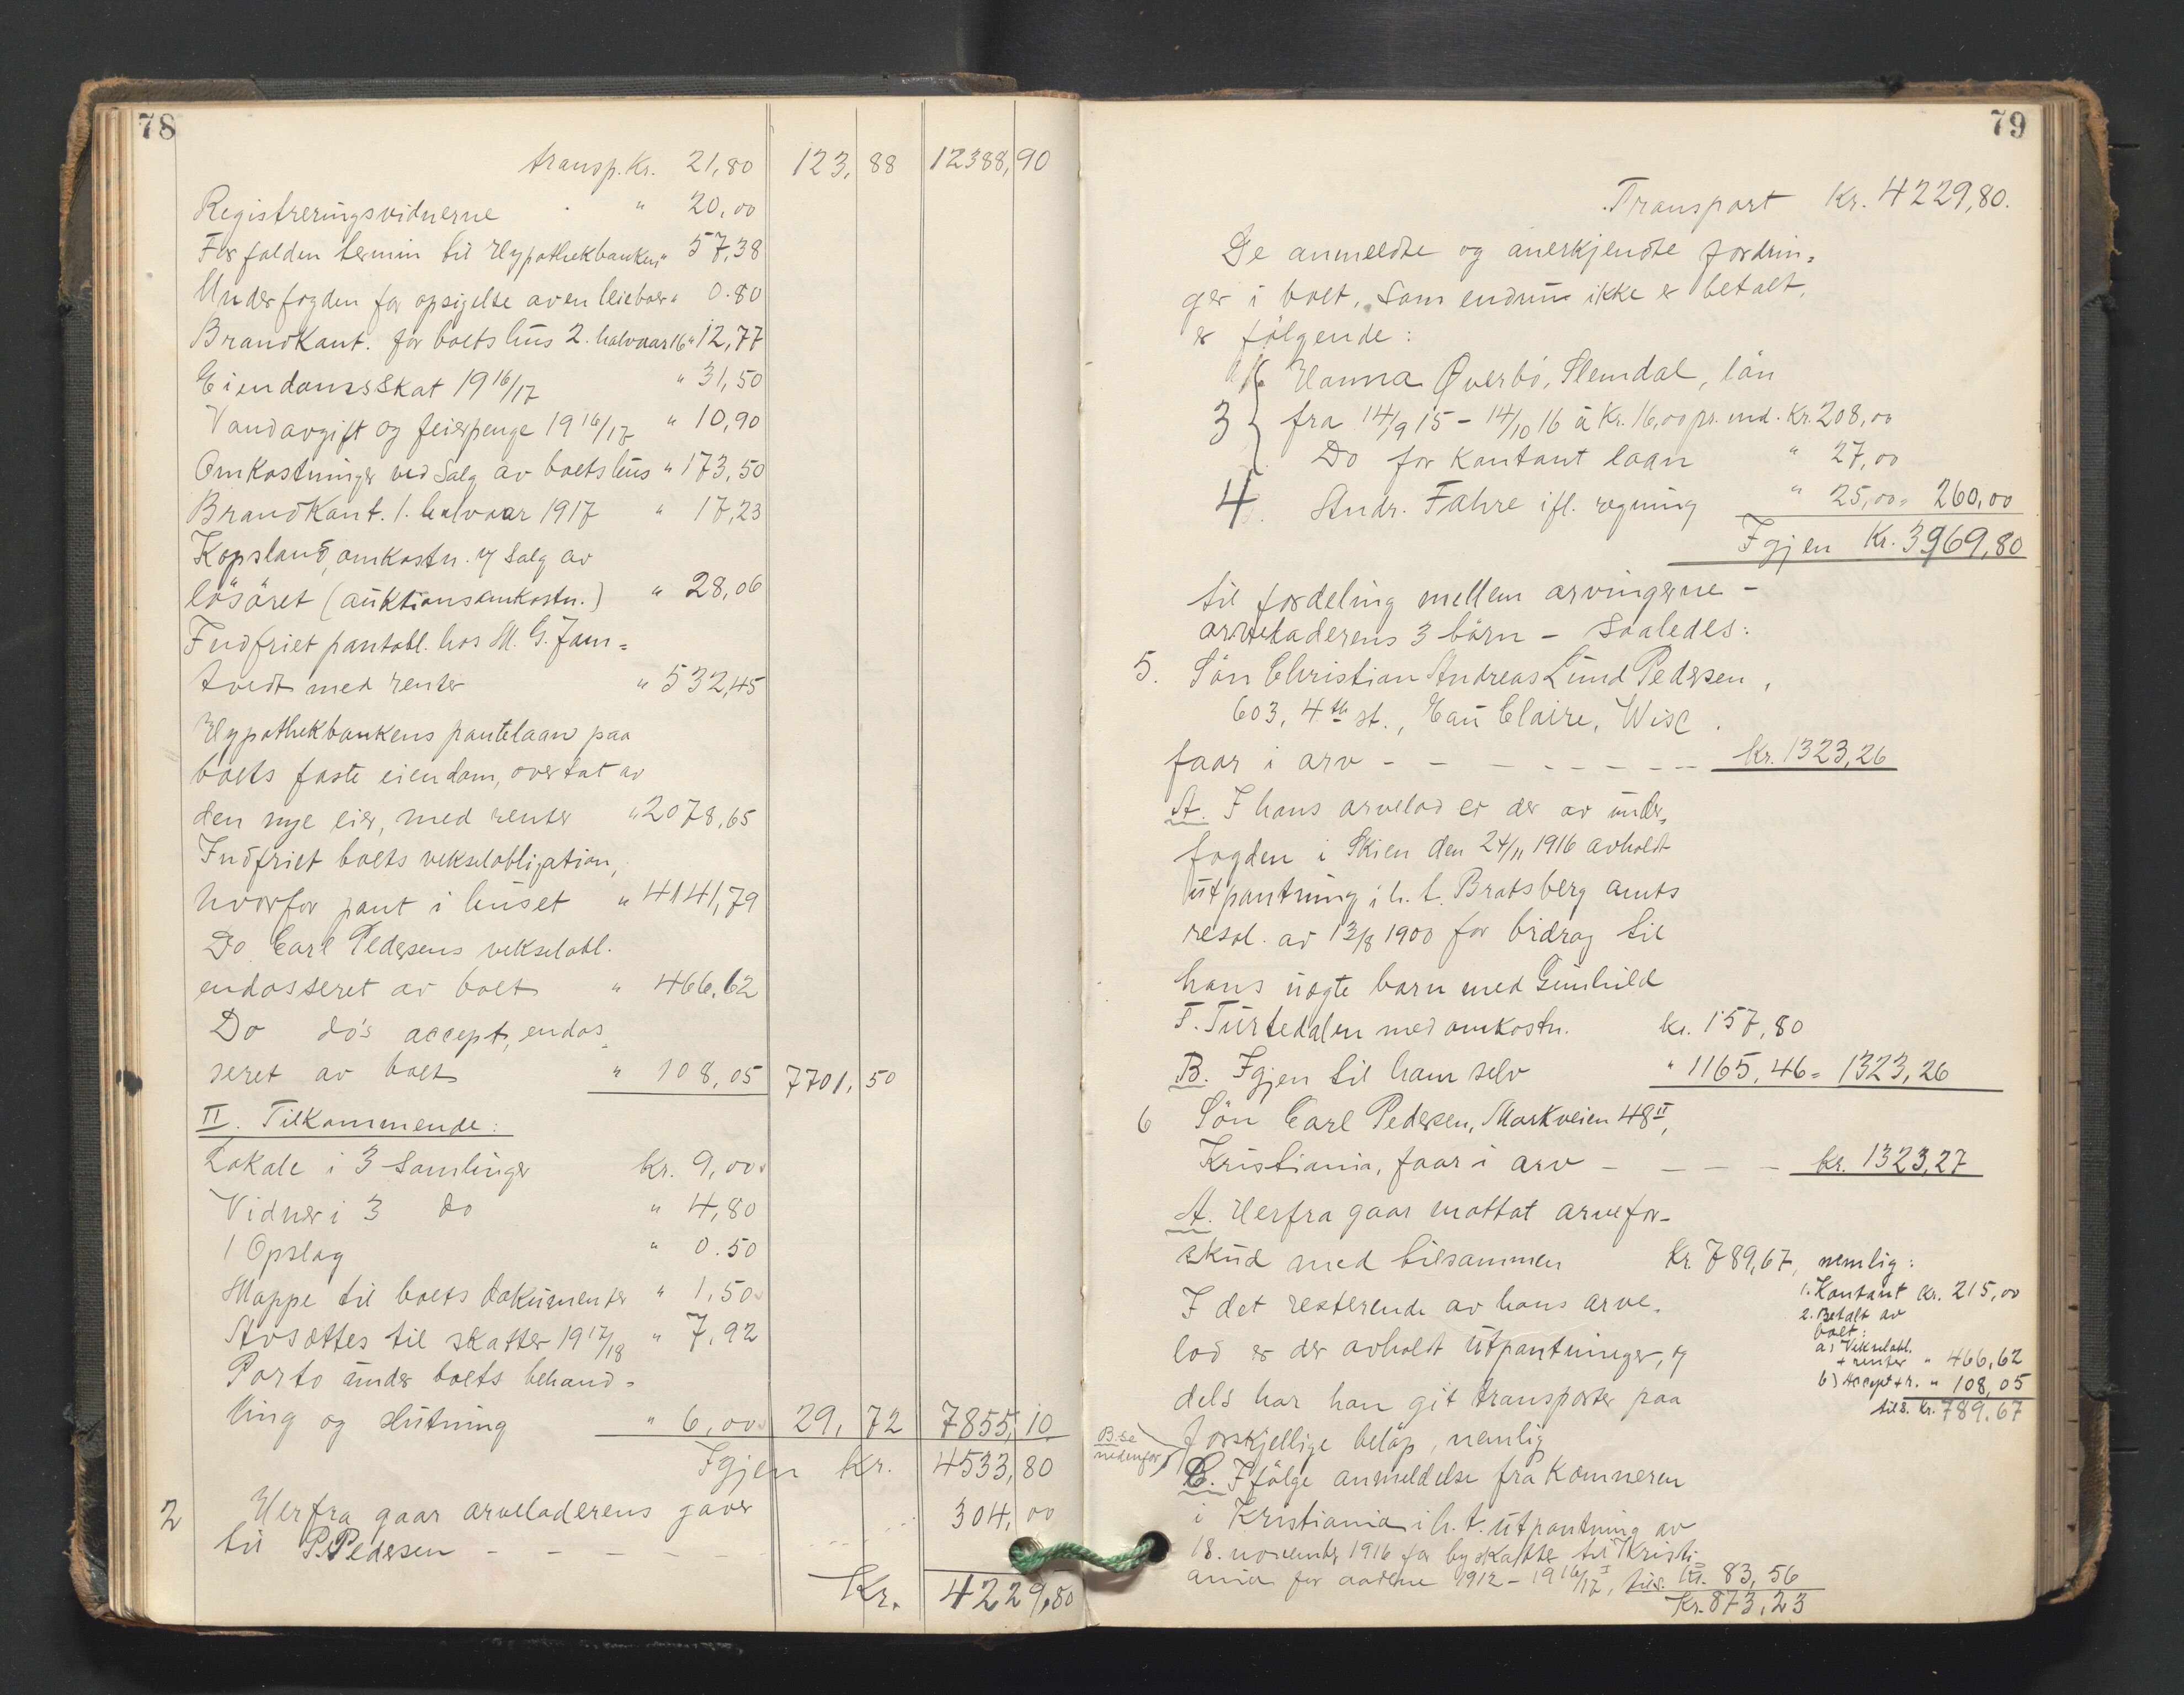 78
transp. Kr. 21,80 123,88 12388,90
Registreringsvidnerne " 20,00
Forfalden termin til Hypothekbanken " 57,38
Underfogden for opsigelse av en leieboer " 0.80
Brandkont. for boets hus 2. halvaar 16 " 12,77
Eiendomsskat 1916/17 " 31,50
Vandavgift og feierpenge 1916/17 " 10,90
Omkostninger ved salg av boets hus " 173,50
Brandkont. 1. halvaar 1917 " 17,23
Kopsland, omkostn. v/ salg av
løsøret (auktionsomkostn.) " 28,06
Indfriet pantobl. hos M. G. Jam=
tvedt med renter " 532,45
Hypothekbankens pantelaan paa
boets faste eiendom, overtat av
den nye eier, med renter " 2078,65
Indfriet boets vekselobligation,
hvorfor pant i huset " 4141,79
Do Carl Pedersens vekselobl.
endosseret av boet " 466,62
Do do's accept, endos=
seret av boet " 108,05 7701,50
II. Tilkommende:
Lokale i 3 samlinger kr. 9,00
Vidner i 3 do " 4,80
1 Opslag " 0.50
Mappe til boets dokumenter " 1,50
Avsættes til skatter 1917/18 " 7,92
Porto under boets behand=
ling og slutning " 6,00 29,72 7855,10
Igjen Kr. 4533,80
2 Herfra gaar arveladerens gaver 304,00
til P. Pedersen - - - - - -
Kr. 4229,80
79
Transport Kr. 4229,80.
De anmeldte og anerkjendte fordrin=
ger i boet, som endnu ikke er betalt,
er følgende:
Hanna Øverbö, Slemdal, lön
3 fra 14/9 15 - 14/10 16 à Kr. 16,00 pr. md. Kr. 208,00
Do for kontant laan " 27,00
4. Andr. Fahre ifl. regning " 25,00 = 260,00
Igjen Kr. 3969,80
til fordeling mellem arvingerne -
arveladerens 3 börn - saaledes:
5. Sön Christian Andreas Lund Pedersen,
603, 4th st., Eau Claire, Wisc.
faar i arv - - - - - - - kr. 1323,26
A. I hans arvelod er der av under=
fogden i Skien den 24/11 1916 avholdt
utpantning i h. t. Bratsberg amts
resol. av 13/8 1900 for bidrag til
hans uegte barn med Gunhild
T. Turtedalen med omkostn. kr. 157,80
B. Igjen til ham selv " 1165,46 = 1323,26
6 Sön Carl Pedersen, Markveien 48 II,
Kristiania, faar i arv - - - - kr. 1323,27
A. Herfra gaar mottat arvefor-
skud med tilsammen Kr. 789,67, nemlig:
1. Kontant kr. 215,00
2. Betalt av
boet:
a) Vekselobl.
+ renter " 466,62
b) Accept + r. " 108,05
tils. kr. 789,67
I det resterende av hans arve=
lod er der avholdt utpantninger, og
dels har han git transporter paa
forskjellige beløp, nemlig
B. se
nedenfor
C. Ifölge anmeldelse fra Kæmneren
i Kristiania i h. t. utpantning av
18. november 1916 for byskatter til Kristi-
ania for aarene 1912 - 1916/17 I, tils. kr. 83,56
Kr. 873,23